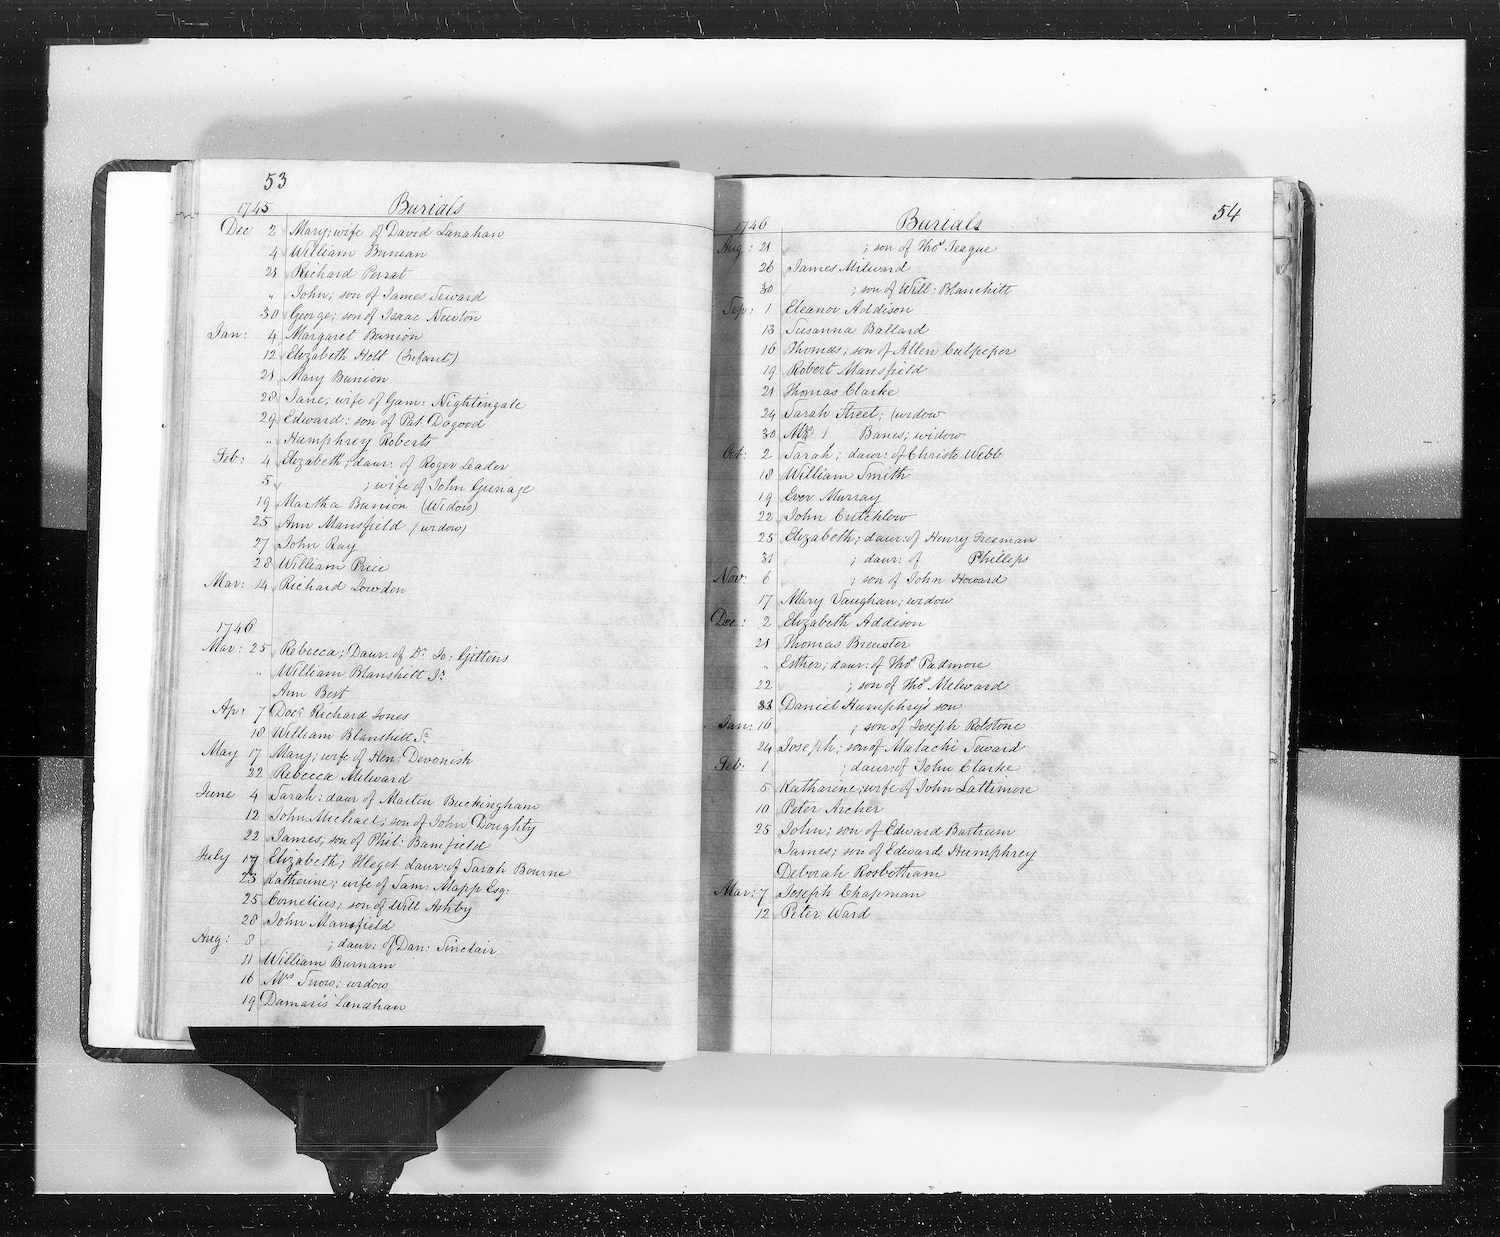 53
1745 Burials
Dec 2 Mary; wife of David Lanahan
4 William Bunian
21 Richard Perrat
" John; son of James Seward
30 George; son of Isaac Newton
Jan: 4 Margaret Bunion
12 Elizabeth Holt (Infant)
21 Mary Bunion
28 Jane; wife of Gam: Nightingale
29 Edward: son of Pat. Dagood
" Humphrey Roberts
Feb: 4 Elizabeth; daur: of Roger Leader
5 ; wife of John Gunage
19 Martha Bunion (Widow)
25 Ann Mansfield (widow)
27 John Ray
28 William Price
Mar: 14 Richard Lowden
1746
Mar: 25 Rebecca; Daur: of Dr. Jo: Gittens
" William Blanshett Jr.
Ann Best
Ap: 7 Docr. Richard Jones
18 William Blanshett Sr.
May 17 Mary; wife of Hen: Devonish
22 Rebecca Milward
June 4 Sarah: daur of Marten Buckingham
12 John Michael; son of John Doughty
22 James; son of Phil: Bamfield
July 17 Elizabeth; Illeget. daur: of Sarah Bourne
23 Katherine; wife of Sam: Mapp Esq:
25 Cornelius; son of Will Ashby
28 John Mansfield
Aug: 8 ; daur: of Dan: Sinclair
11 William Burnam
16 Mrs ; widow
19 Damaris Lanahan
54
1746 Burials
Aug: 21 ; son of Thos. Teague
26 James Milward
30 ; son of Will: Blanchett
Sep: 1 Eleanor Addison
13 Susanna Ballard
16 Thomas; son of Allen Culpeper
19 Robert Mansfield
21 Thomas Clarke
24 Sarah Street; (widow
30 Banes; widow
Oct: 2 Sarah; daur: of Christo Webb
18 William Smith
19 Ever Murray
22 John Critchlow
25 Elizabeth; daur: of Henry Freeman
31 ; daur: of Phillips
Nov: 6 ; son of John Howard
17 Mary Vaughan; widow
Dec: 2 Elizabeth Addison
21 Thomas Brewster
" Esther; daur: of Thos. Padmore
22 ; son of Thos. Melward
Daniel Humphry's son
Jan: 16 ; son of Joseph Rolstone
24 Joseph; son of Malachi Seward
Feb: 1 ; daur: of John Clarke
5 Katharine; wife of John Lattimore
10 Peter Archer
25 John; son of Edward Bartrum
James; son of Edward Humphrey
Deborah Rosbotham
Mar: 7 Joseph Chapman
12 Peter Ward